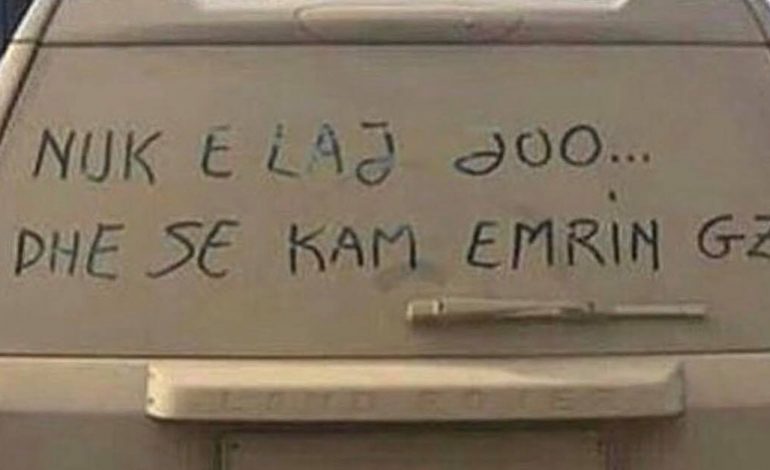 NUK E LAJ JOO...
DHE SE KAM EMRIN GZ
LAND ROVER